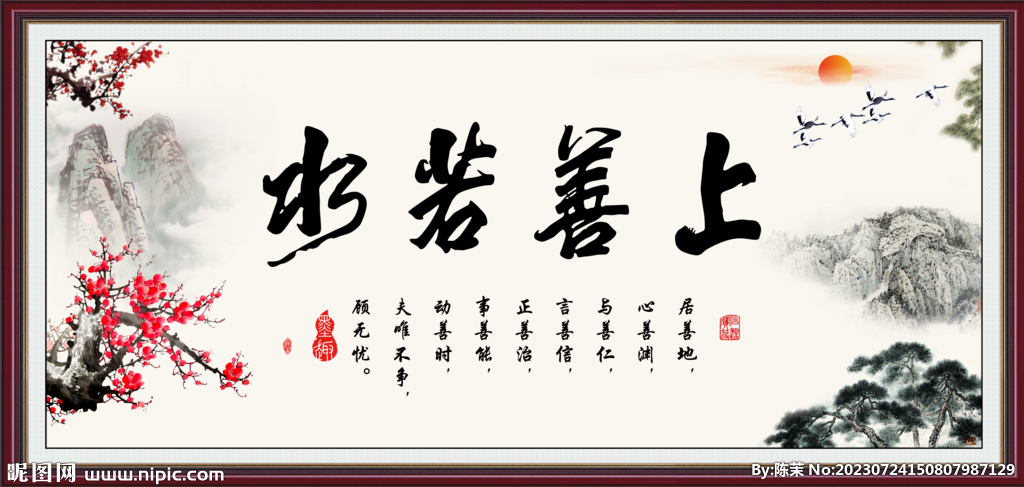 上善若水
居善地,
心善渊,
与善仁,
言善信,
正善治,
事善能,
动善时,
夫唯不争,
顾无忧。
墨趣
昵图网 www.nipic.com
By:陈茉 No:20230724150807987129